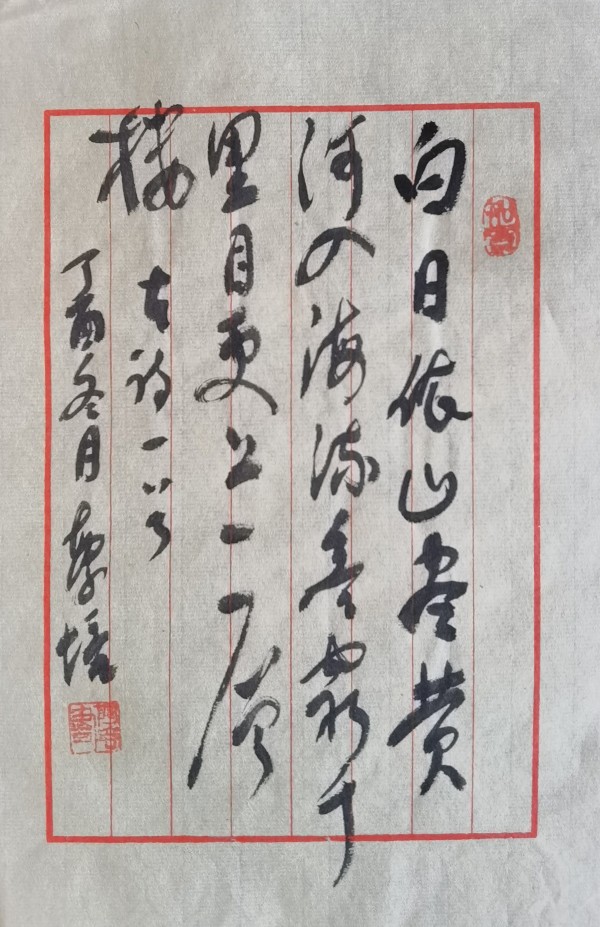 白日依山盡黄
河入海流欲窮千
里目更上一層
樓
古詩一首
丁酉冬月